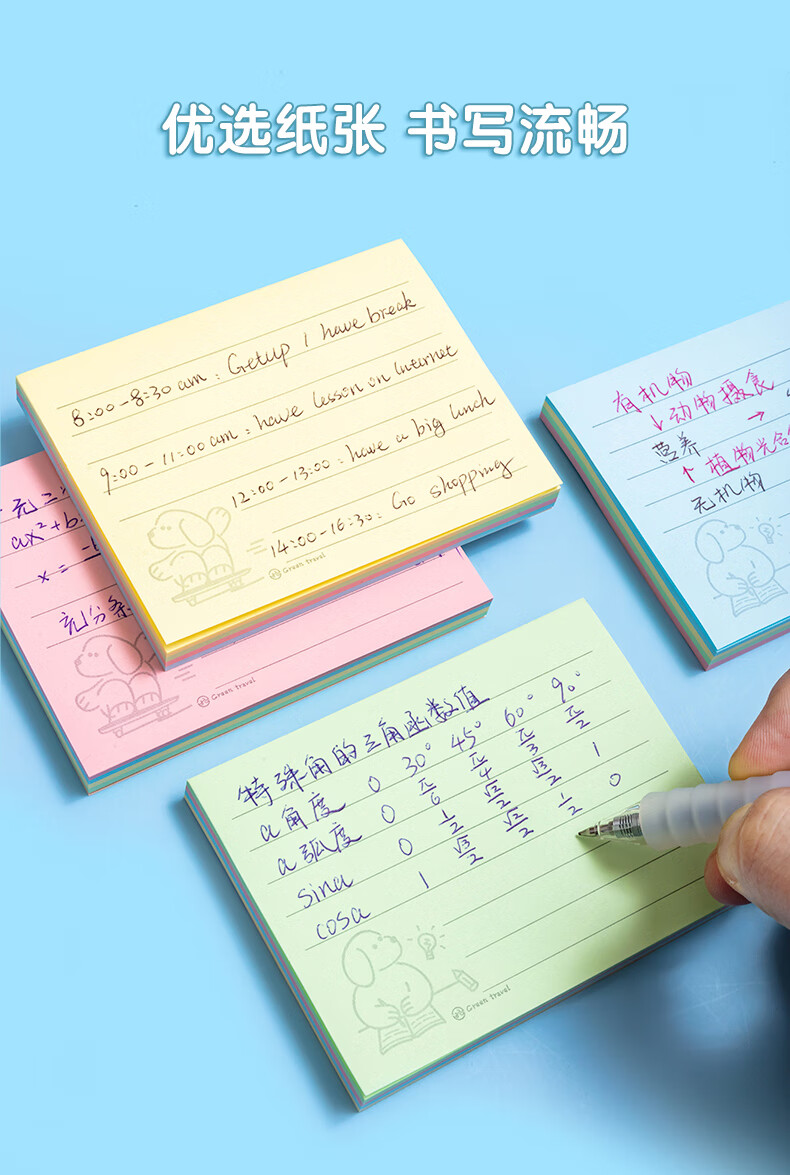 优选纸张 书写流畅
8:00-8:30 am: Getup / have break
9:00-11:00 am: have lesson on Internet
12:00-13:00: have a big lunch
14:00-16:30: Go shopping
Green travel
有机物
↓动物摄食
营养 →
↑植物光合
无机物
ax²+b
x = -b
充分条
Green travel
特殊角的三角函数值
a角度 0 30° 45° 60° 90°
a弧度 0 π/6 π/4 π/3 π/2
sina 0 1/2 √2/2 √3/2 1
cosa 1 √3/2 √2/2 1/2 0
Green travel